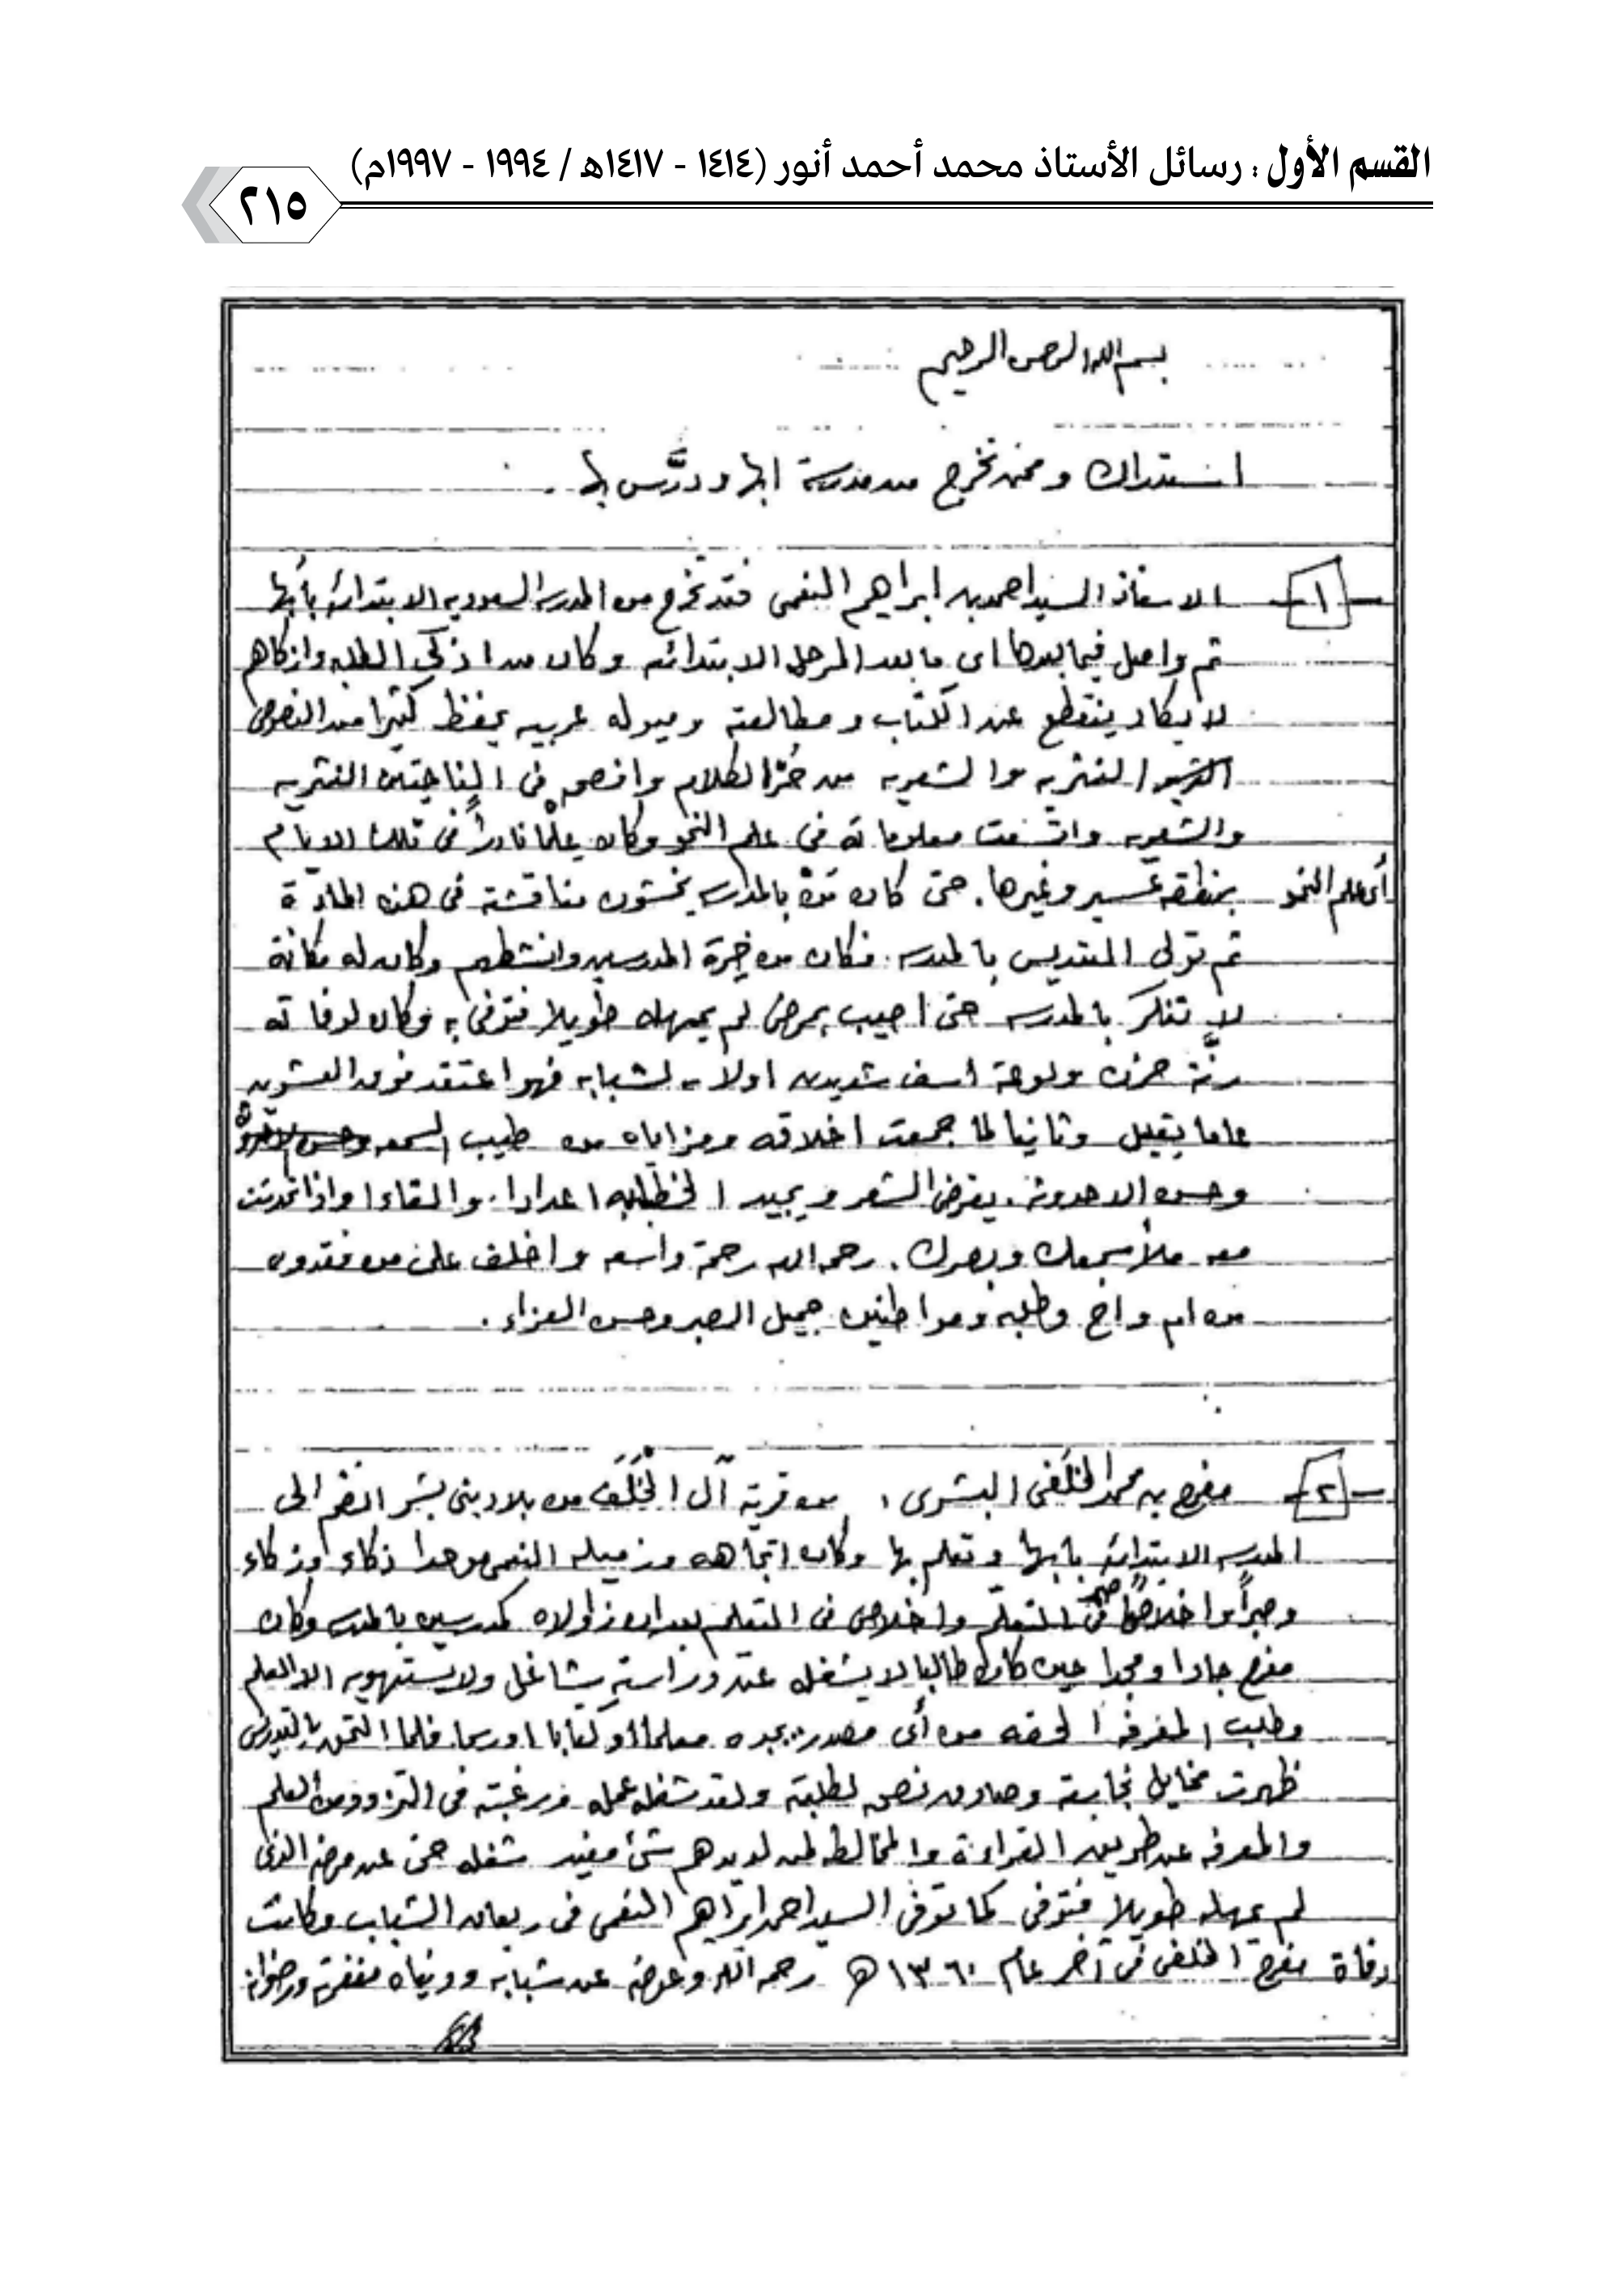 القسم الأول : رسائل الأستاذ محمد أحمد أنور (١٤١٤ - ١٤١٧هـ / ١٩٩٤ - ١٩٩٧م)
٢١٥
بسم الله الرحمن الرحيم
استدراك وممن تخرج من مدرسة ابها ودرَّس بها .
-١- الاستاذ السيد احمد بن ابراهيم النعمى فقد تخرج من المدرسه السعوديه الابتدائيه بأبها
ثم واصل فيما بعدها اى ما بعد المرحله الابتدائيه وكان من اذكى الطلبه وازكاهم
لا يكاد ينقطع عن الكتاب ومطالعته وميوله عربيه يحفظ كثيرا من النصوص
النثريه والشعريه من حُرّ الكلام وافصحه فى الناحيتين النثريه
والشعريه واتسعت معلوماته فى علم النحو وكان علمًا نادراً فى تلك الايام
أى علم النحو بمنطقه عسير وغيرها . حتى كان بالمدرسه يخشون مناقشته فى هذه المادّة
ثم تولى التدريس بالمدرسه . فكان من خيرة المدرسين وانشطهم وكان له مكانة
لا تنكر بالمدرسه حتى اصيب بمرض لم يمهله طويلا فتوفى به وكان لوفاته
رنَّة حزن ولوعة اسف شديدين اولا لشبابه فهو اعتقد فوق العشرين
عاما بقليل وثانيا لما جمعت اخلاقه ومزاياه من طيب السمعه
وحسن الاحدوثه . يقرض الشعر ويجيد الخطابه اعدادا والقاءا واذا تحدثت
معه ملأ سمعك وبصرك . رحمه الله رحمة واسعه واخلف على من فقدوه
من ام واخ وطلبه ومواطنين جميل الصبر وحسن العزاء .
-٢- مفرح بن محمد الخَلَفى البشرى ، من قرية آل الخَلَف من بلاد بنى بشر انضم الى
المدرسه الابتدائيه بابها وتعلم بها وكان اتجاهه وزميله النعمى موحدا ذكاء وزكاء
وصبراً واخلاصًا فى التعلم واخلاص فى التعليم بعد ان زاولاه كمدرسين بالمدرسه وكان
مفرح جادا ومجدا حين كان طالبا لا يشغله عن دراسته شاغل ولا يستهويه الا العلم
وطلب المعرفه الحقه من أى مصدر يجده معلما او كتابا او رسما فلما التحق بالتدريس
ظهرت مخايل نجابته وصادق نصحه لطلبته ولقد شغله عمله ورغبته فى التزود من العلم
والمعرفه عن طريق القراءة والمخالطه لمن لديهم شئ مفيد شغله حتى عن مرضه الذى
لم يمهله طويلا فتوفى كما توفى السيد احمد ابراهيم النعمى فى ريعان الشباب وكانت
وفاة مفرح الخلفى فى آخر عام ١٣٦٠ هـ رحمه الله وعوضه عن شبابه ودنياه مغفرته ورضوانه